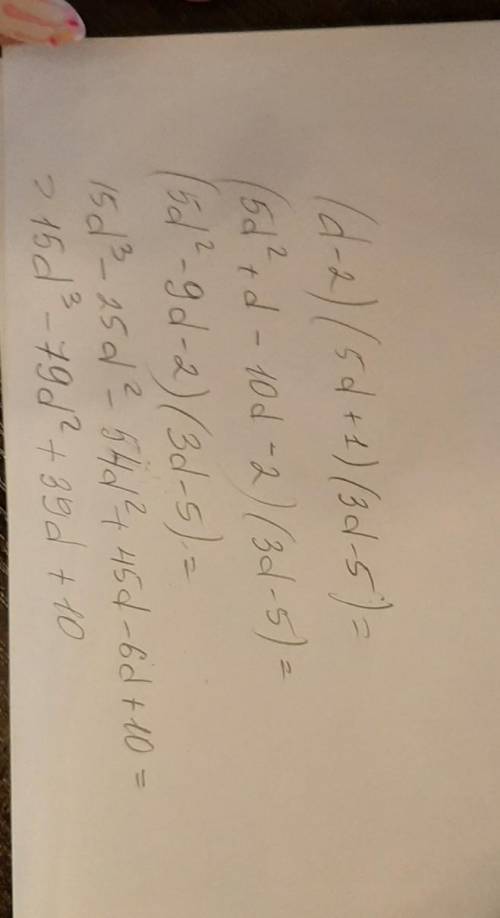 (d-2)(5d+1)(3d-5)=
(5d²+d-10d-2)(3d-5)=
(5d²-9d-2)(3d-5)=
15d³-25d²-54d²+45d-6d+10=
=15d³-79d²+39d+10